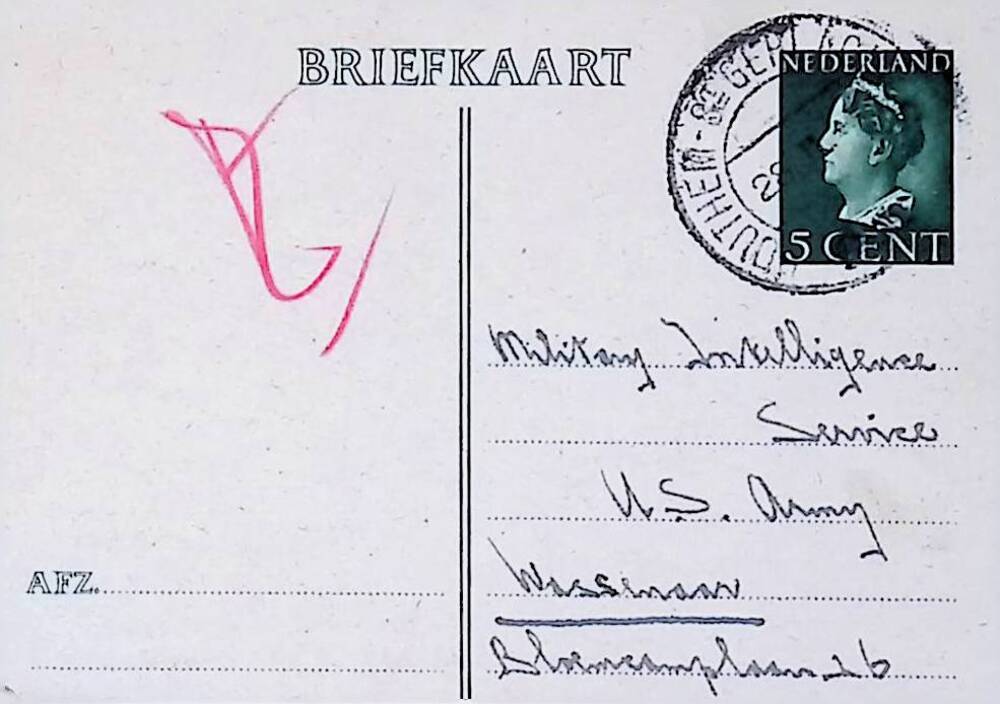 BRIEFKAART
NEDERLAND
5 CENT
HOUTHEM - ST GERLACH
Military Intelligence
Service
U.S. Army
Wassenaar
Bloemcamplaan 26
AFZ.